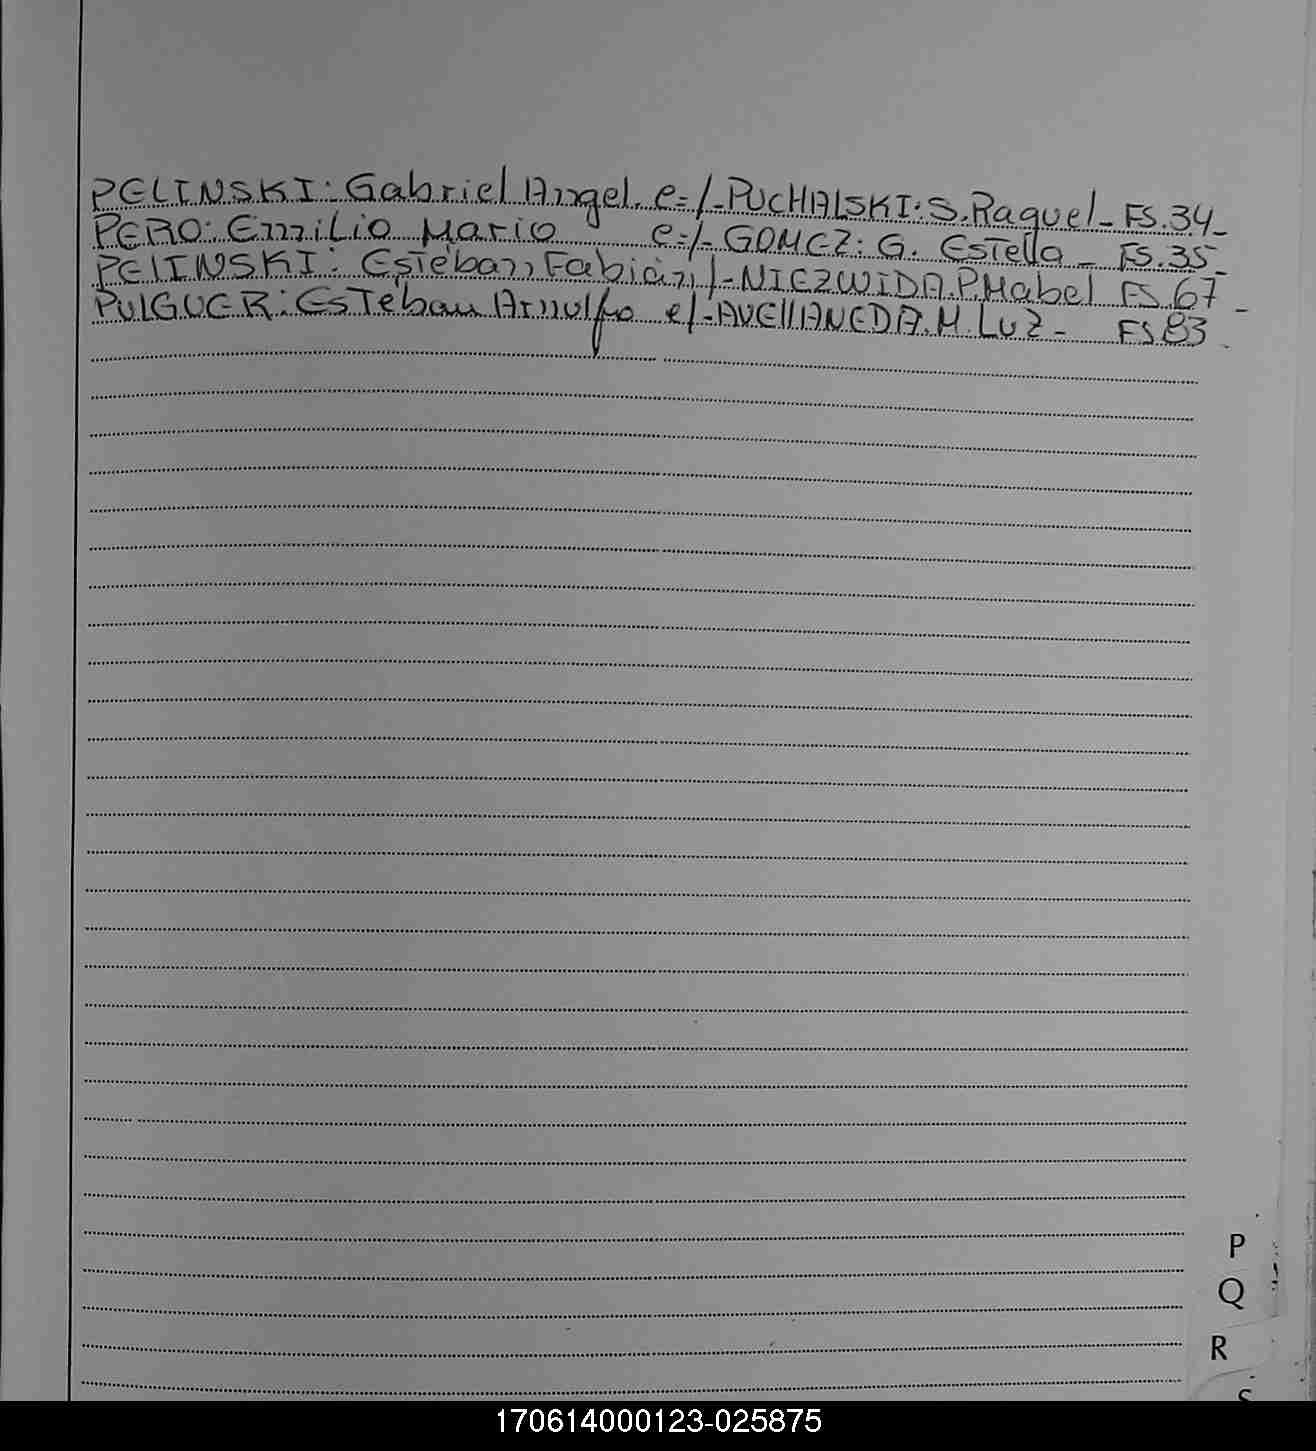 PELINSKI: Gabriel Angel. e=/-PUCHALSKI: S. Raquel- FS.34-
PERO: Emilio Mario e=/- GOMEZ: G. Estella - FS.35-
PELINSKI: Esteban Fabián /-NIEZWIDA.P.Mabel FS 67 -
PULGUER: Esteban Arnulfo e/-AVEllANEDA.M.Luz- FS 83
P
Q
R
S
170614000123-025875